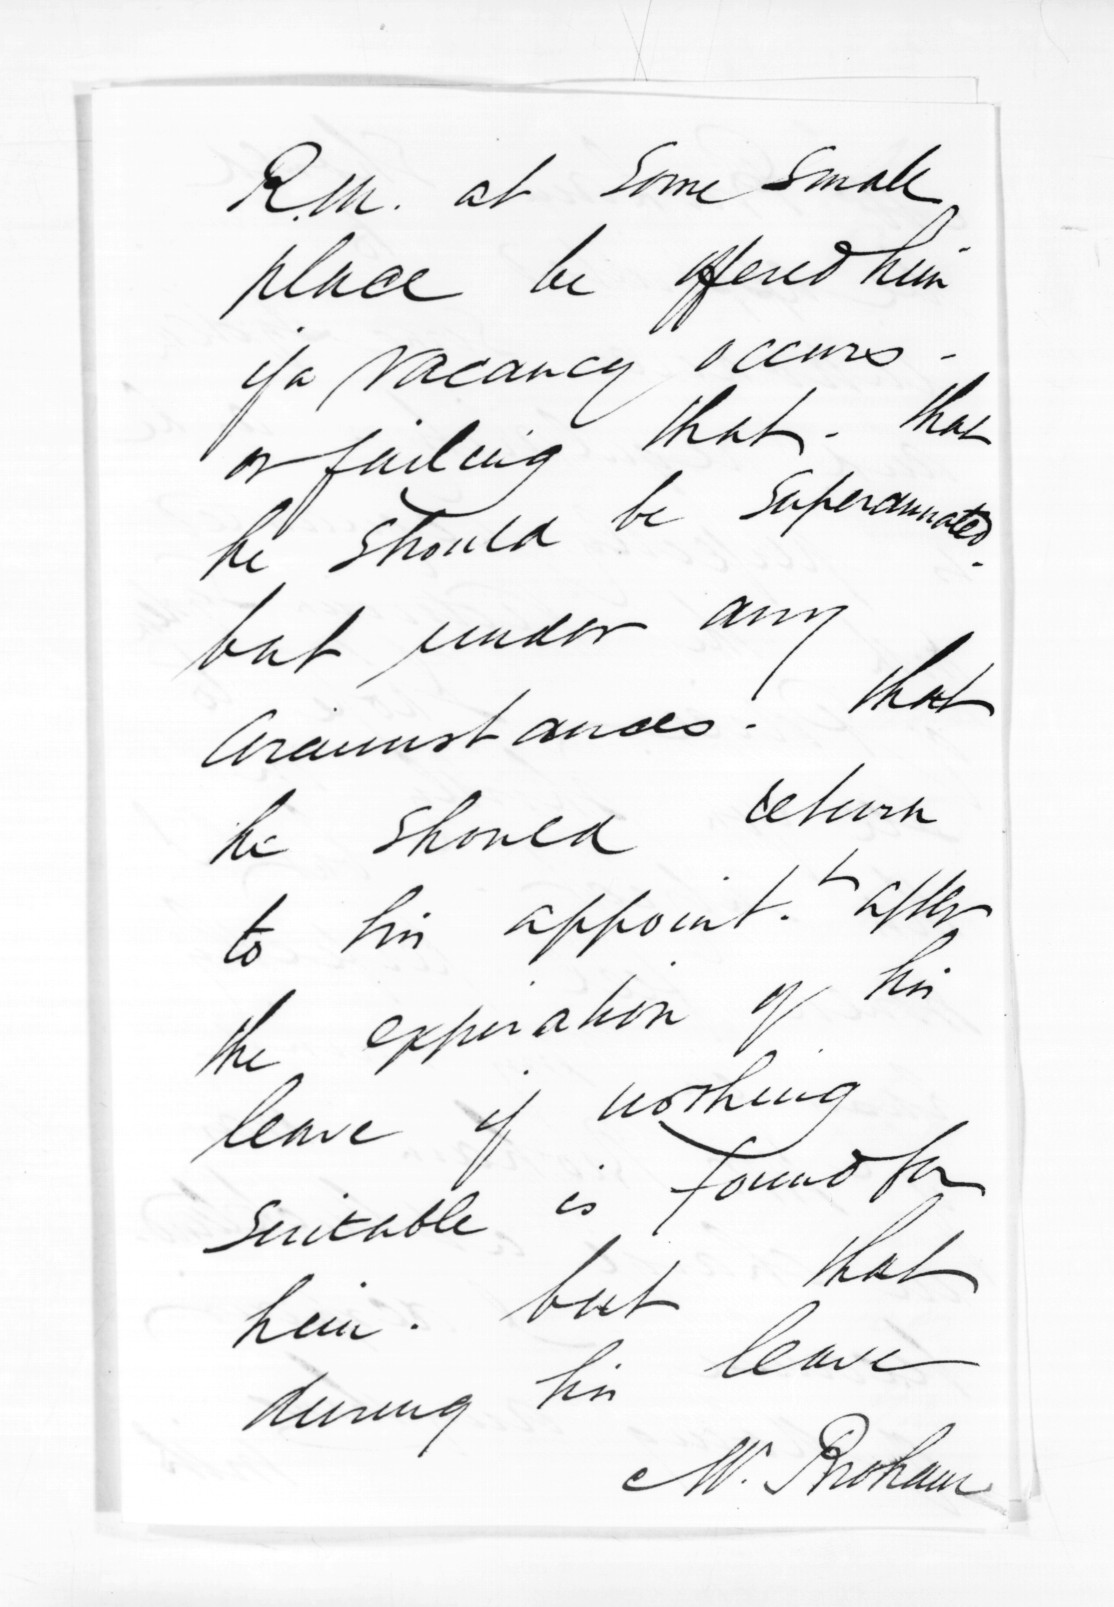 R.M. at some small
place be offered him
if a vacancy occurs -
or failing that - that
he should be superannuated.
but under any
circumstances - that
he should return
to his appoint.t after
the expiration of his
leave if nothing
suitable is found for
him. but that
during his leave
Mr. Broham